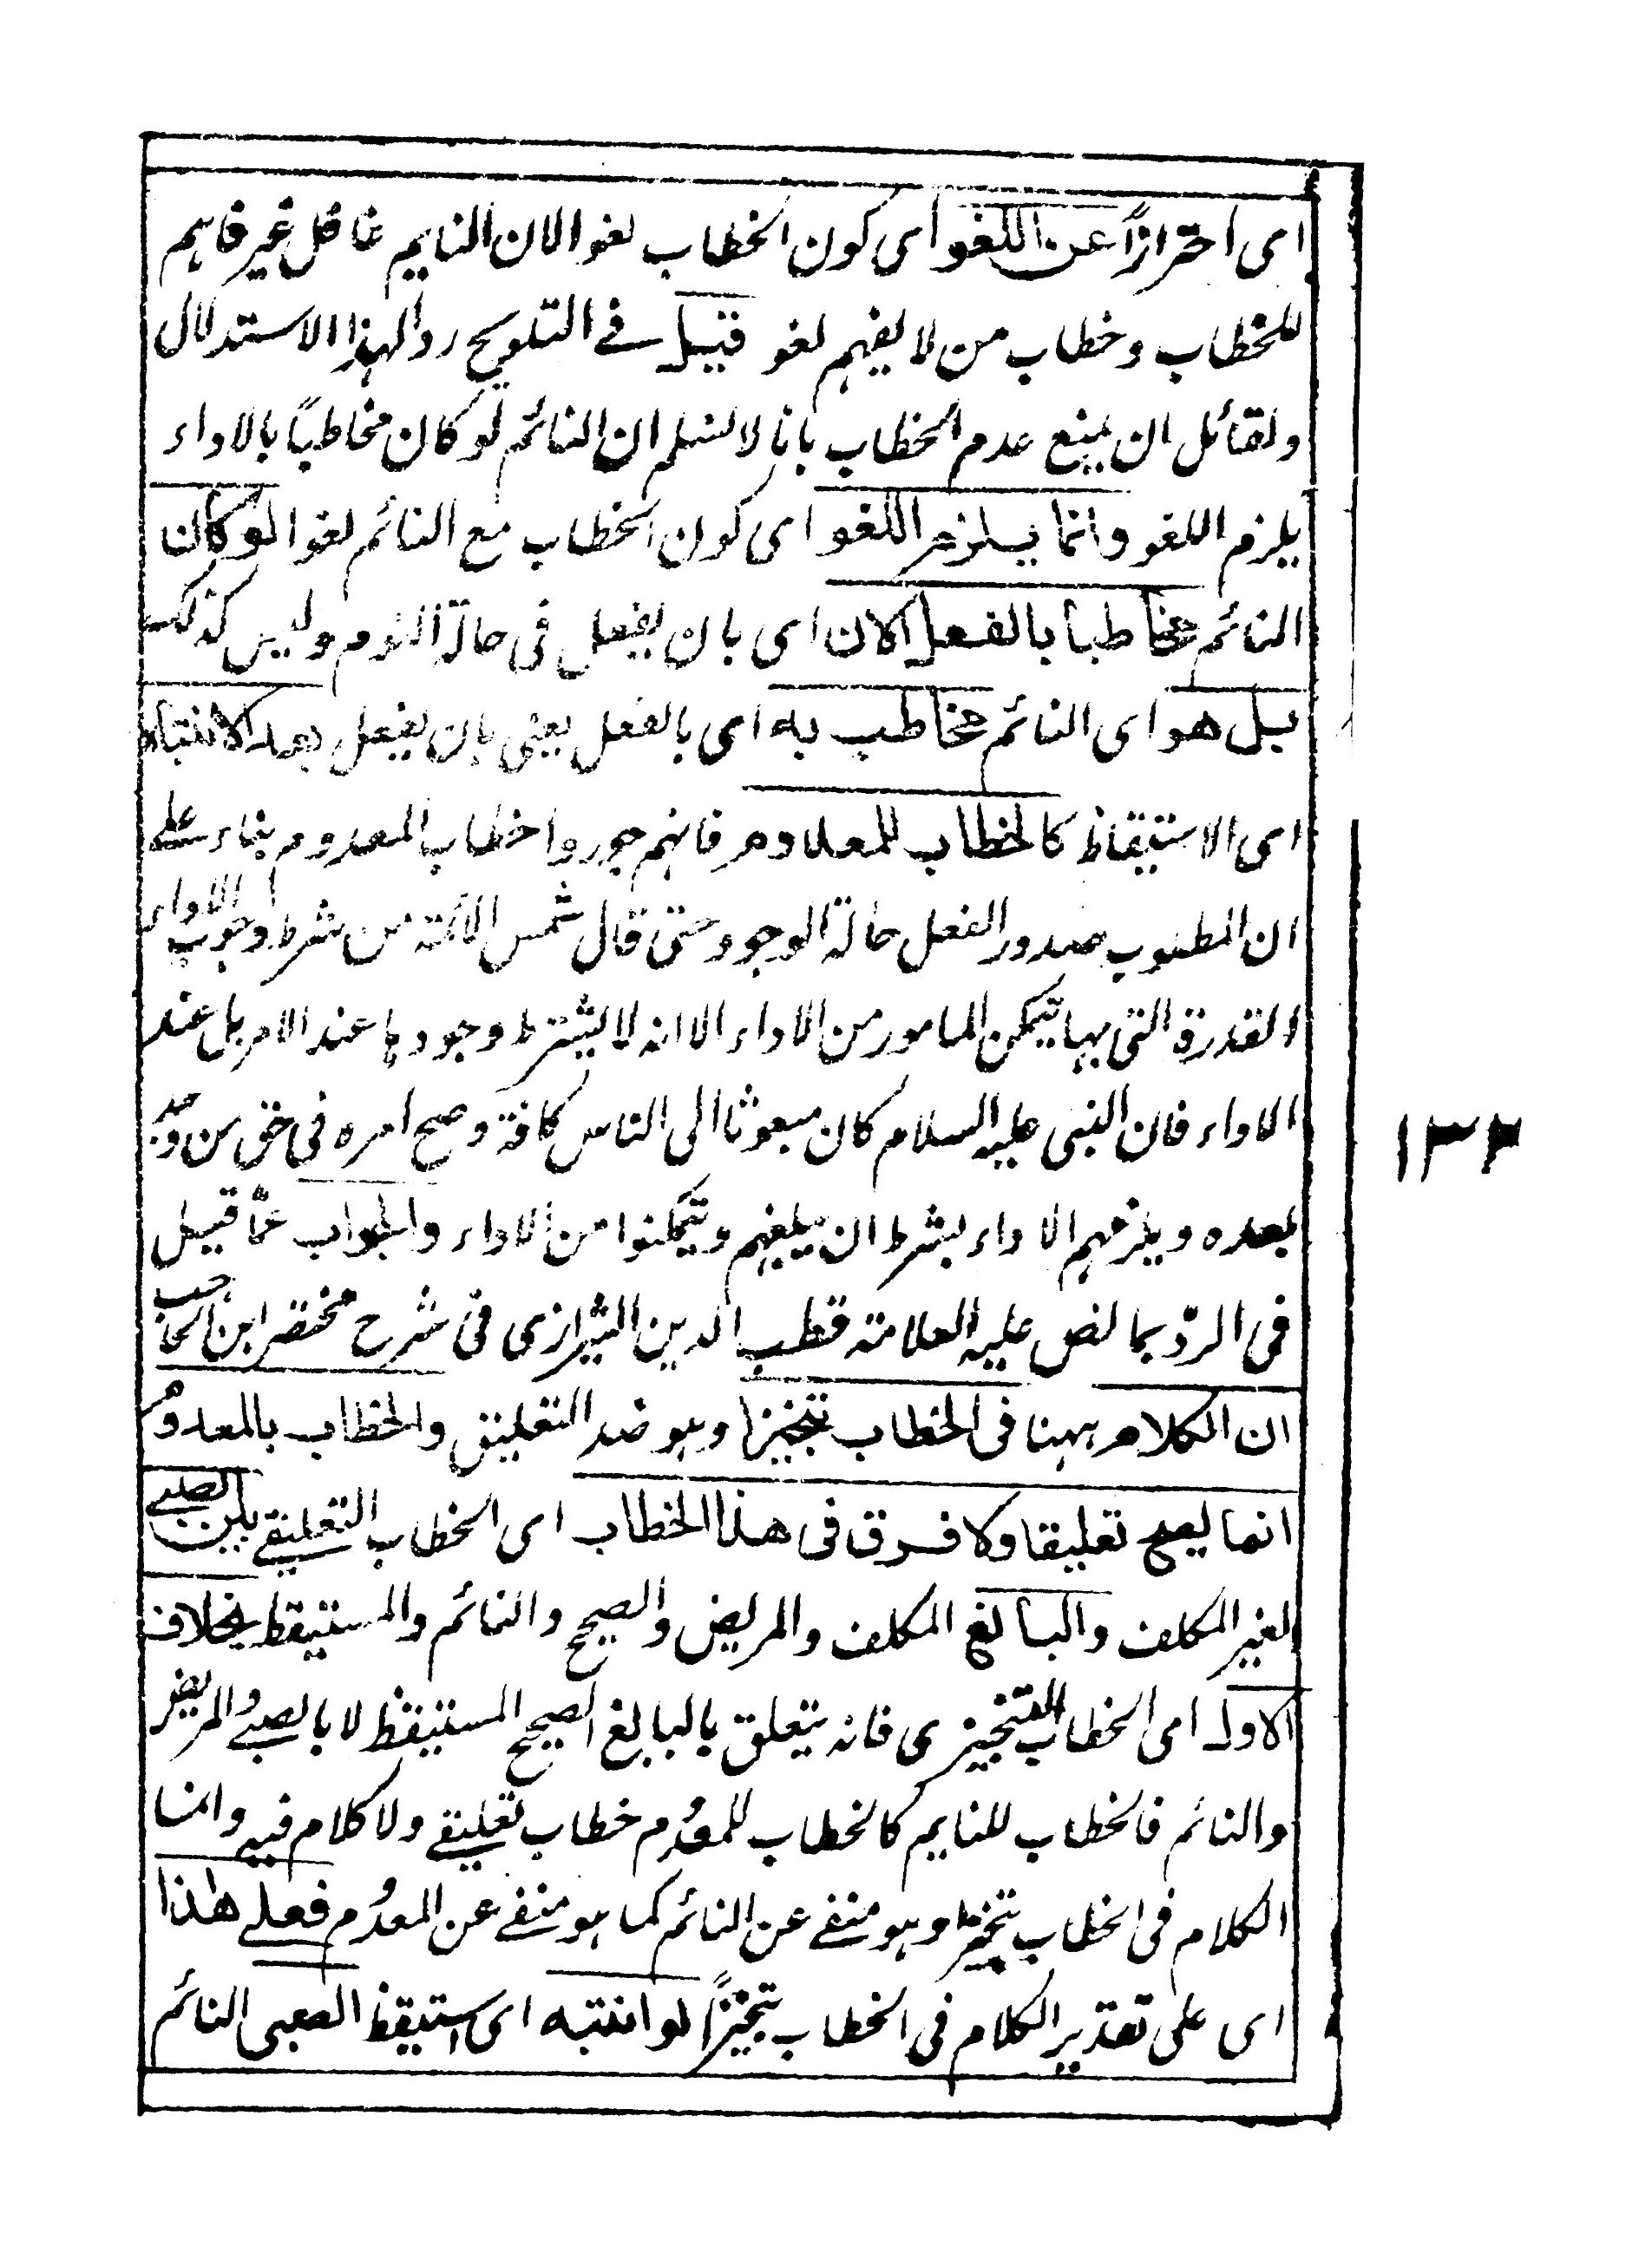 اى احترازاً عن اللغو اى كون الخطاب لغوا لان النايم غافل غير فاهم
للخطاب وخطاب من لا يفهم لغو قيل فى التلويح ردا لهذا الاستدلال
ولقائل ان يمنع عدم الخطاب بانا لا نسلم ان النائم لو كان مخاطباً بالاداء
يلزم اللغو وانما يلزم اللغو اى كون الخطاب مع النائم لغوا لو كان
النائم مخاطبا بالفعل الان اى بان يفعل فى حالة النوم وليس كذلك
بل هو اى النائم مخاطب به اى بالفعل يعنى بان يفعل بعد الانتباه
اى الاستيقاظ كالخطاب للمعدوم فانهم جوزوا خطاب المعدوم بناء على
ان المطلوب صدور الفعل حالة الوجود حتى قال شمس الائمة من شرط وجوب الاداء
القدرة التى بها يتمكن المامور من الاداء الا انه لا يشترط وجودها عند الامر بل عند
الاداء فان النبى عليه السلام كان مبعوثا الى الناس كافة وصح امره فى حق من وجد
بعده ويلزمهم الاداء بشرط ان يبلغهم ويتمكنوا من الاداء والجواب عمّا قيل
فى الردّ بما نص عليه العلامة قطب الدين الشيرازى فى شرح مختصر ابن الحاجب
ان الكلام ههنا فى الخطاب تنجيزا وهو ضد التعليق والخطاب بالمعدوم
انما يصح تعليقا ولا فرق فى هذا الخطاب اى الخطاب التعليقى بين الصبى
لغير المكلف والبالغ المكلف والمريض والصحيح والنائم والمستيقظ بخلاف
الاول اى الخطاب التنجيزى فانه يتعلق بالبالغ الصحيح المستيقظ لا بالصبى والمريض
والنائم فالخطاب للنايم كالخطاب للمعدوم خطاب تعليقى ولا كلام فيه وانما
الكلام فى الخطاب تنجيزا وهو منفى عن النائم كما هو منفى عن المعدوم فعلى هذا
اى على تقدير الكلام فى الخطاب تنجيزاً لو انتبه اى استيقظ الصبى النائم
١٣٢